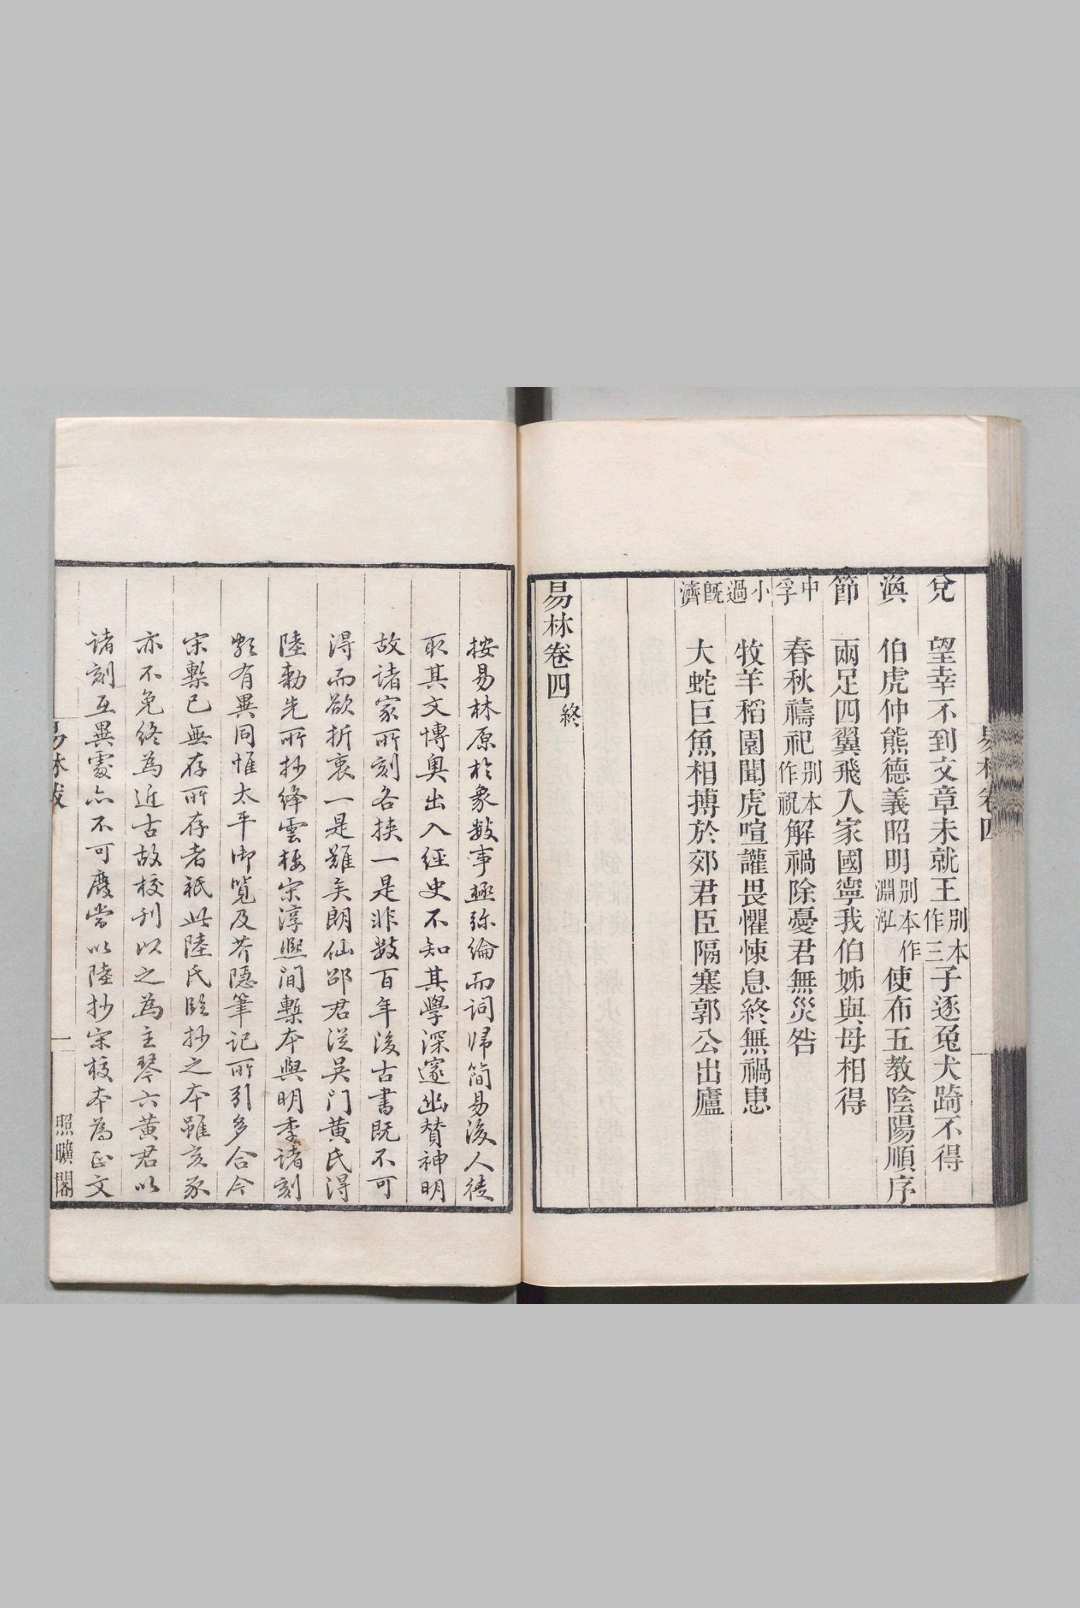 易林卷四
兌 望幸不到文章未就王別本作三子逐兔犬踦不得
渙 伯虎仲熊德義昭明別本作淵泓使布五教陰陽順序
節 兩足四翼飛入家國寧我伯姊與母相得
中孚 春秋禱祀別本作祝解禍除憂君無災咎
小過 牧羊稻園聞虎喧讙畏懼悚息終無禍患
既濟 大蛇巨魚相搏於郊君臣隔塞郭公出廬
易林卷四終
按易林原於象數事極彌綸而詞歸簡易後人徒
取其文博奧出入經史不知其學深邃幽贊神明
故諸家所刻各挾一是非數百年後古書既不可
得而欲折衷一是難矣朗仙邵君從吳門黃氏得
陸勅先所抄絳雲樓宋淳熙間槧本與明季諸刻
頗有異同惟太平御覽及芥隱筆記所引多合今
宋槧已無存所存者祇此陸氏臨抄之本雖亥豕
亦不免終為近古故校刊以之為主琴六黃君以
諸刻互異處亦不可廢嘗以陸抄宋校本為正文
易林跋 一 照曠閣